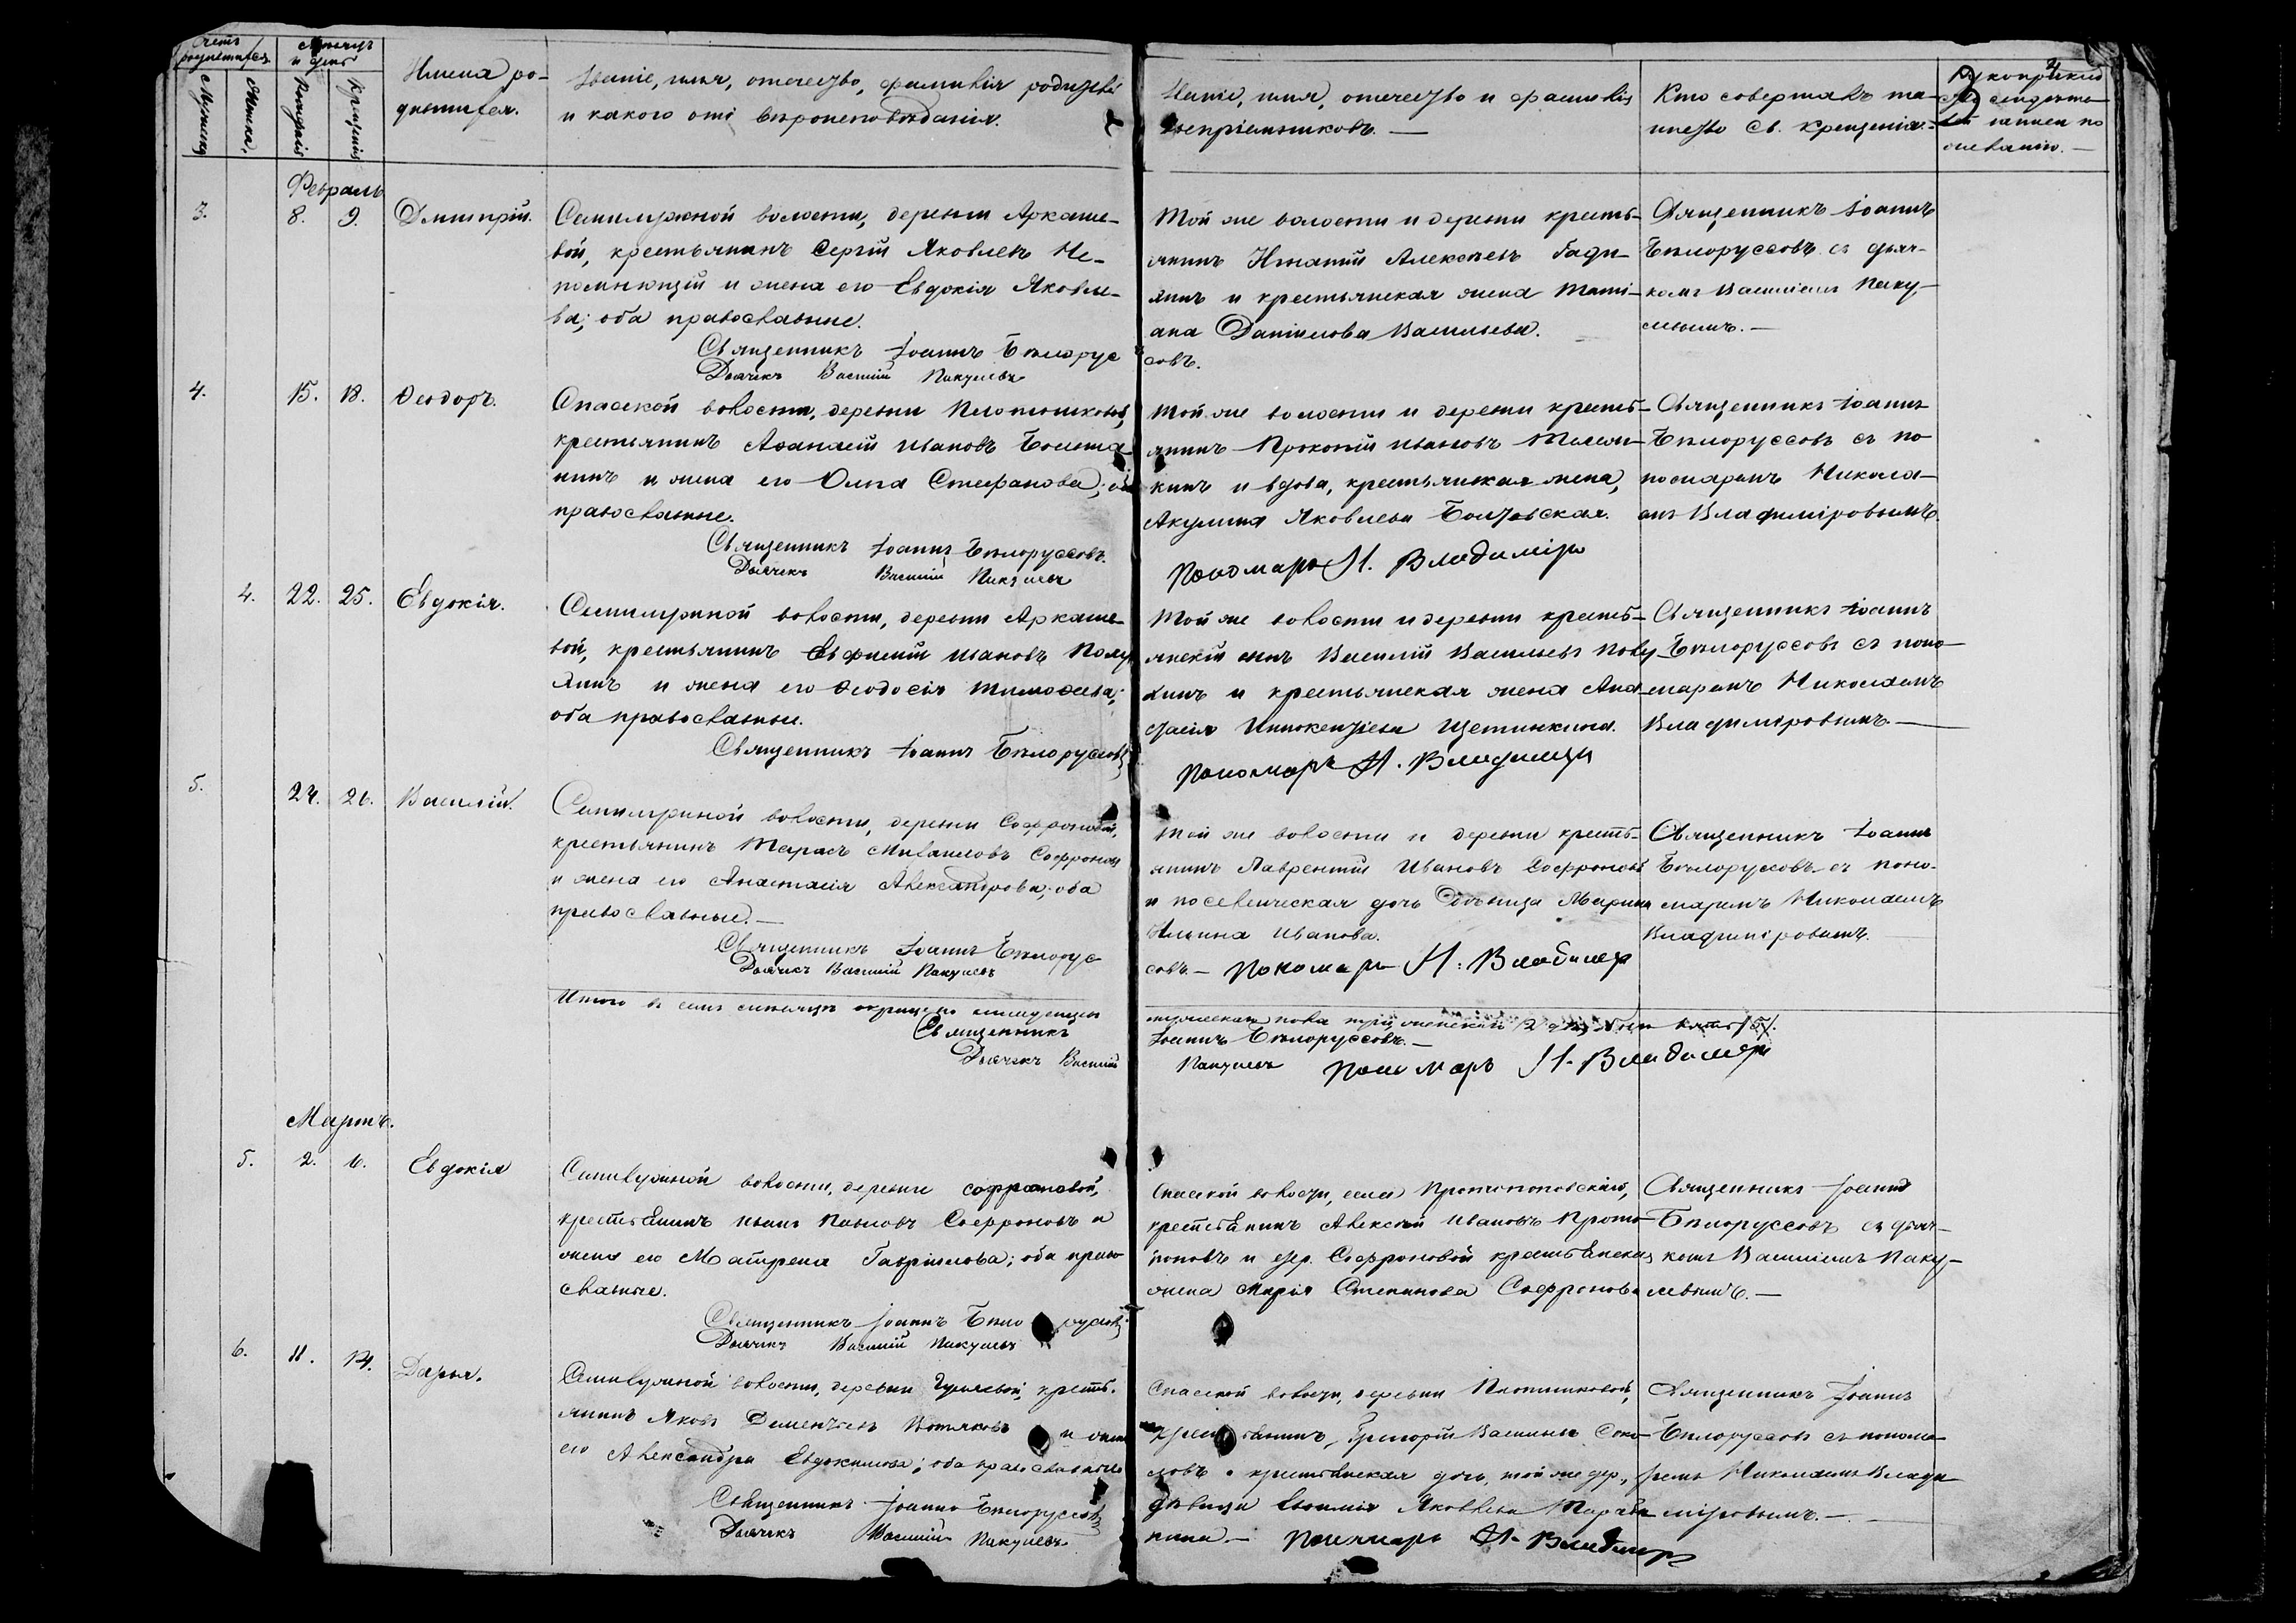 Счетъ родившихся
Мужеска
Женска
Месяцъ и день
Рожденія
Крещенія
Имена ро-
дившихся.
Званіе, имя, отчество, фамилія родителей
и какого они вѣроисповѣданія.
Званіе, имя, отчество и фамилія
воспріемниковъ. —
Кто совершалъ та-
инство св. крещенія.
Рукоприклад
ство свидѣте
лей записи по
желанію. —
2
Февраль
3.
8.
9.
Дмитрій.
Семилужной волости, деревни Аркаше-
вой, крестьянинъ Сергій Яковлевъ Не-
помнющій и жена его Евдокія Яковле-
ва; оба православные.
Священникъ Іоаннъ Бѣлорус
совъ.
Дьячекъ Василій Пакулевъ
Той же волости и деревни кресть-
янинъ Игнатій Алексѣевъ
и крестьянская жена Тати-
ана Даніилова Васильева.
Священникъ Іоаннъ
Бѣлоруссовъ съ дьяч-
комъ Василіемъ Паку-
левымъ. —
4.
15.
18.
Ѳеодоръ.
Спасской волости, деревни Плотниковой,
крестьянинъ Аѳанасій Ивановъ
и жена его Ольга Стефанова; оба
православные.
Священникъ Іоаннъ Бѣлоруссовъ.
Дьячекъ Василій Пакулевъ
Той же волости и деревни кресть-
янинъ Прокопій Ивановъ
и вдова, крестьянская жена,
Акулина Яковлева
Пономарь Н. Владиміров
Священникъ Іоаннъ
Бѣлоруссовъ съ по-
номаремъ Никола-
емъ Владиміровымъ.
4.
22.
25.
Евдокія.
Семилужной волости, деревни Аркаше-
вой, крестьянинъ Евфимій Ивановъ
и жена его Ѳеодосія Тимоѳеева;
оба православные.
Священникъ Іоаннъ Бѣлоруссовъ
Той же волости и деревни кресть-
янскій сынъ Василій Васильевъ
и крестьянская жена Ана-
стасія Иннокентіева Щетинкина.
Пономарь Н. Владиміров
Священникъ Іоаннъ
Бѣлоруссовъ съ поно-
маремъ Николаемъ
Владиміровымъ. —
5.
24.
26.
Василій.
Семилужной волости, деревни Софроновой,
крестьянинъ Тарасъ Михаиловъ Софроновъ
и жена его Анастасія Александрова; оба
православные. —
Священникъ Іоаннъ Бѣлорус
совъ —
Дьячекъ Василій Пакулевъ
Той же волости и деревни кресть-
янинъ Лаврентій Ивановъ Софроновъ
и поселенческая дочь дѣвица Марина
Ильина Иванова.
Пономарь Н. Владимір
Священникъ Іоаннъ
Бѣлоруссовъ съ поно-
маремъ Николаемъ
Владиміровымъ.
Итого въ семъ мѣсяцѣ крещено младенцевъ
мужеска пола три, женска
Священникъ Іоаннъ Бѣлоруссовъ. —
Дьячекъ Василій Пакулевъ
Пономарь Н. Владимір
Мартъ.
5.
2.
6.
Евдокія
Семилужной волости, деревни Софроновой,
крестьянинъ Иванъ Павловъ Софроновъ и
жена его Матрена Гавриилова; оба право-
славные.
Священникъ Іоаннъ Бѣлоруссовъ
Дьячекъ Василій Пакулевъ
Спасской волости, села Протопоповскаго,
крестьянинъ Алексѣй Ивановъ Прото-
поповъ и дер. Софроновой крестьянская
жена Марія Степанова Софронова
Священникъ Іоаннъ
Бѣлоруссовъ съ дьяч-
комъ Василіемъ Паку-
левымъ. —
6.
11.
14.
Дарья.
Семилужной волости, деревни кресть-
янинъ Яковъ Дементьевъ и жена
его Александра Евдокимова; оба православные
Священникъ Іоаннъ Бѣлоруссовъ
Дьячекъ Василій Пакулевъ
Спасской волости, деревни Плотниковой,
крестьянинъ Григорій Васильевъ Соко-
ловъ и крестьянская дочь, той же дер.,
дѣвица Евфимія Яковлева
Пономарь Н. Владимір
Священникъ Іоаннъ
Бѣлоруссовъ съ понома-
ремъ Николаемъ Влади-
міровымъ. —